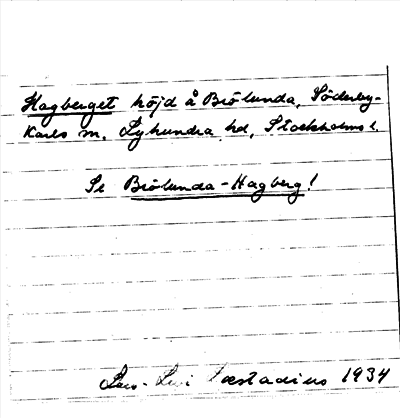 Hagberget höjd å Brölunda, Söderby-
Karls sn, Lyhundra hd, Stockholms l.
Se Brölunda-Hagberg!
Lars-Levi Læstadius 1934